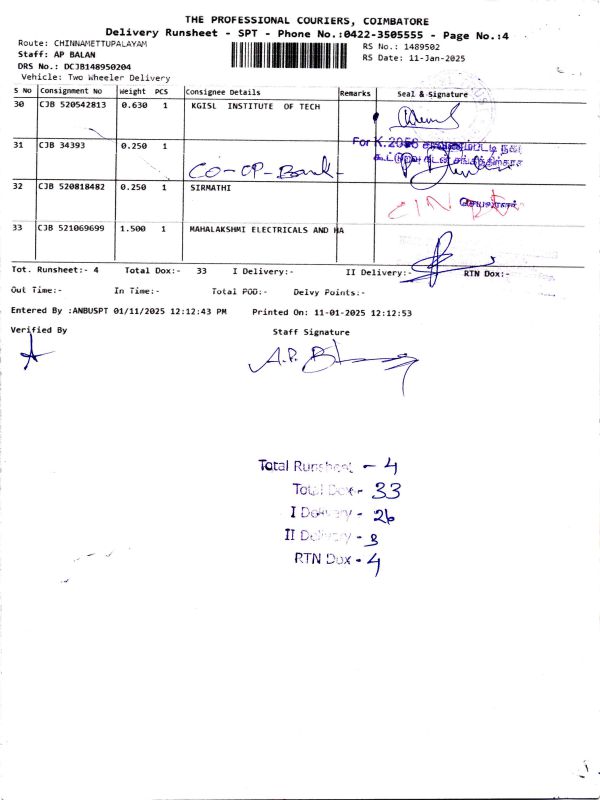 THE PROFESSIONAL COURIERS, COIMBATORE
Delivery Runsheet - SPT - Phone No.:0422-3505555 - Page No.:4
Route: CHINNAMETTUPALAYAM
RS No.: 1489502
Staff: AP BALAN
RS Date: 11-Jan-2025
DRS No.: DCJB148950204
Vehicle: Two Wheeler Delivery
S No Consignment No Weight PCS Consignee Details Remarks Seal & Signature
30 CJB 520542813 0.630 1 KGISL INSTITUTE OF TECH
31 CJB 34393 0.250 1
For K.2058
CO-OP-Bank-
32 CJB 520818482 0.250 1 SIRMATHI
33 CJB 521069699 1.500 1 MAHALAKSHMI ELECTRICALS AND HA
Tot. Runsheet:- 4 Total Dox:- 33 I Delivery:- II Delivery:- RTN Dox:-
Out Time:- In Time:- Total POD:- Delvy Points:-
Entered By :ANBUSPT 01/11/2025 12:12:43 PM Printed On: 11-01-2025 12:12:53
Verified By Staff Signature
A.P.
Total Runsheet - 4
Total Dox - 33
I Delivery - 26
II Delivery - 3
RTN Dox - 4